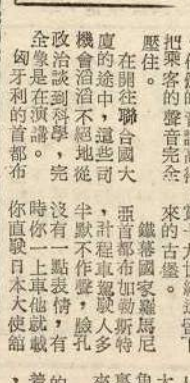 把乘客的聲音完全
壓住。
在開往聯合國大
廈的途中，這些司
機會滔滔不絕地從
政治談到科學，完
全像是在演講。
匈牙利的首都布
來的古堡。
鐵幕國家羅馬尼
亞首都布加勒斯特
，計程車駕駛人多
半默不作聲，臉孔
沒有一點表情，有
時你一上車他就載
你直駛日本大使館